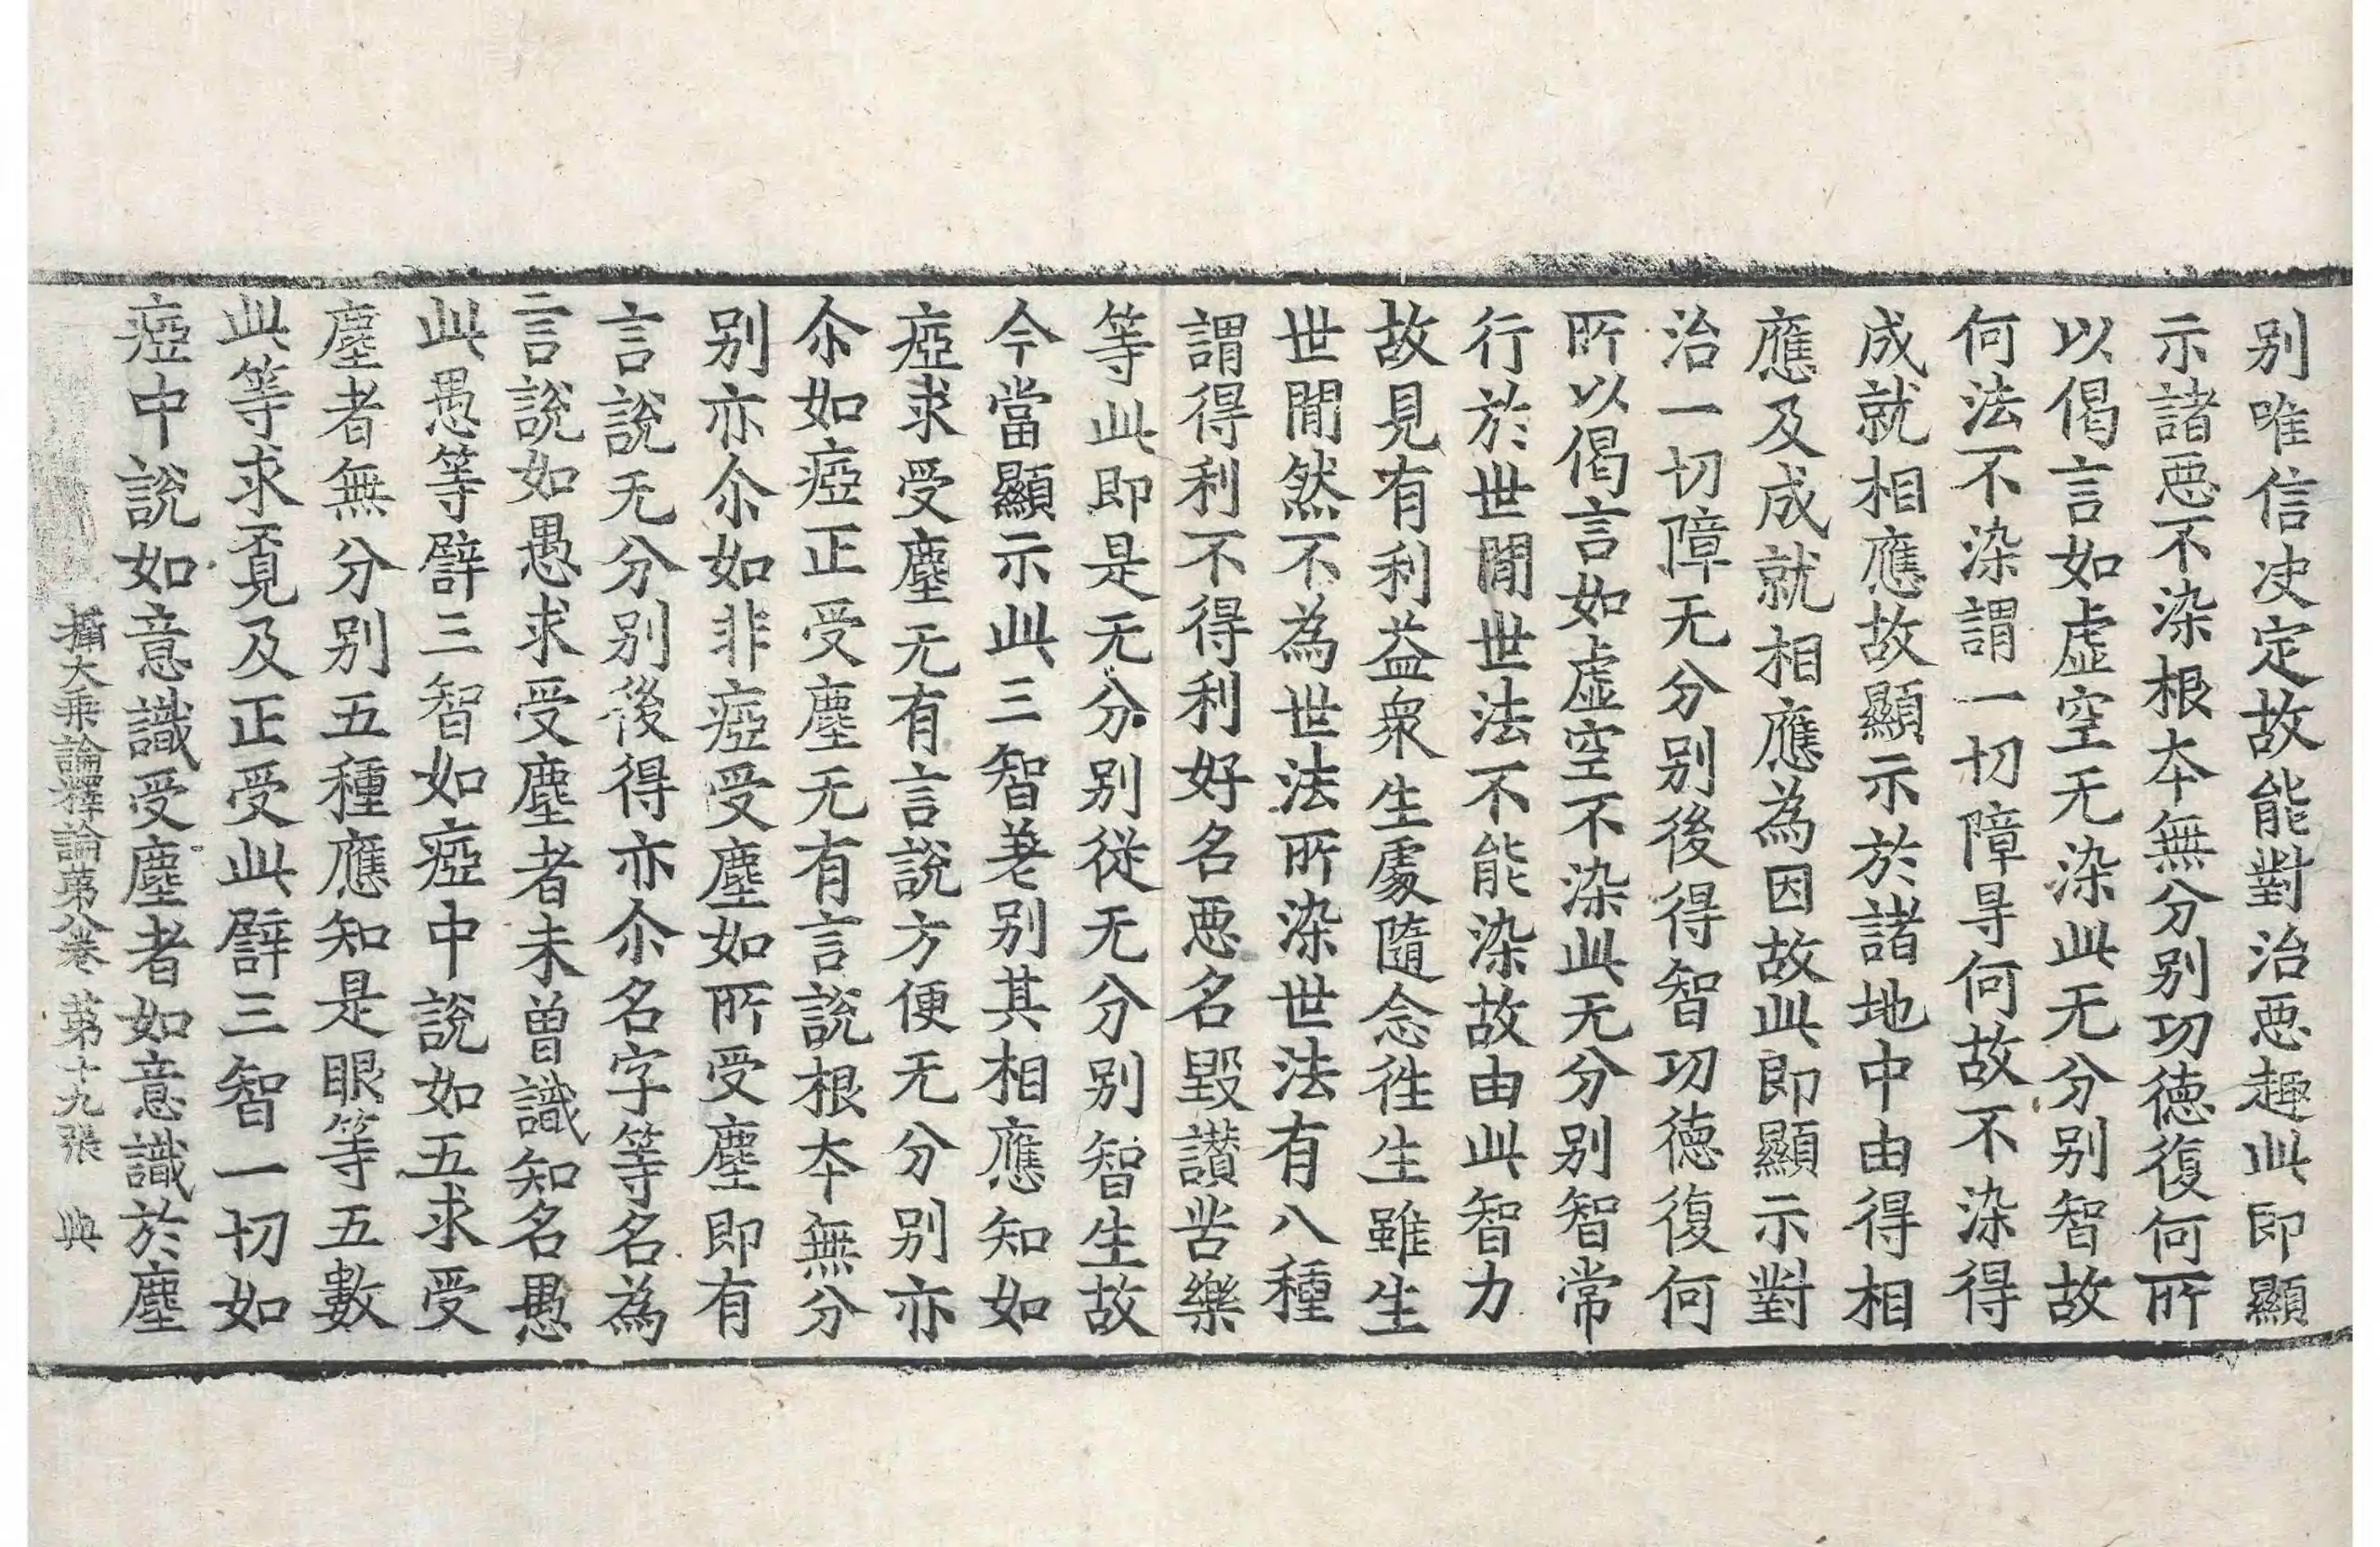 别唯信决定故能對治惡趣此即顯
示諸惡不染根本無分别功德復何所
以偈言如虛空无染此无分别智故
何法不染謂一切障㝵何故不染得
成就相應故顯示於諸地中由得相
應及成就相應為因故此即顯示對
治一切障无分别後得智功德復何
所以偈言如虛空不染此无分别智常
行於世間世法不能染故由此智力
故見有利益衆生處隨念徃生雖生
世間然不為世法所染世法有八種
謂得利不得利好名惡名毀讃苦樂
等此即是无分别從无分别智生故
今當顯示此三智差别其相應知如
瘂求受塵无有言說方便无分别亦
尒如瘂正受塵无有言說根本無分
别亦尒如非瘂受塵如所受塵即有
言說无分别後得亦尒名字等名為
言說如愚求受塵者未曽識知名愚
此愚等譬三智如瘂中說如五求受
塵者無分别五種應知是眼等五數
此等求覔及正受此譬三智一切如
瘂中說如意識受塵者如意識於塵
攝大乗論釋論苐八卷 苐十九張 典